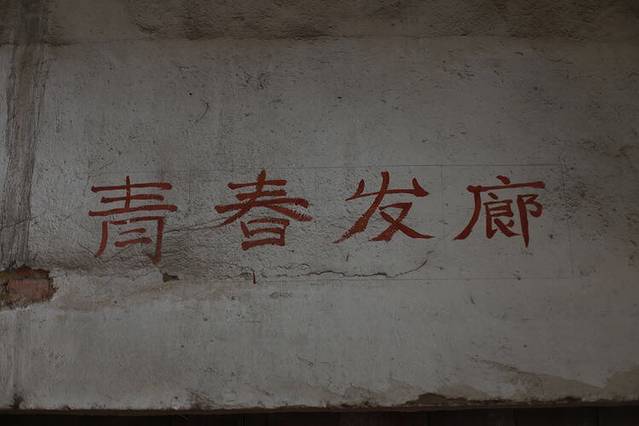 青春发廊